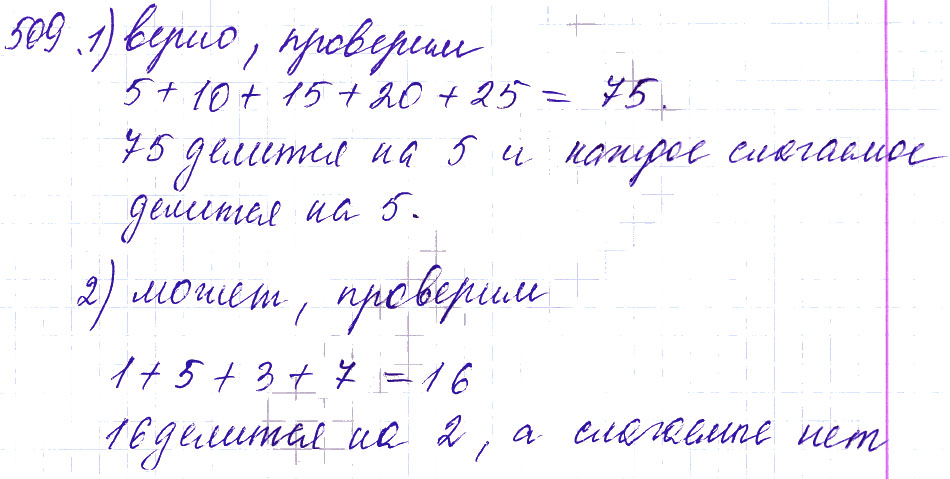 509. 1) верно, проверим
5 + 10 + 15 + 20 + 25 = 75.
75 делится на 5 и каждое слагаемое
делится на 5.
2) может, проверим
1 + 5 + 3 + 7 = 16
16 делится на 2, а слагаемые нет